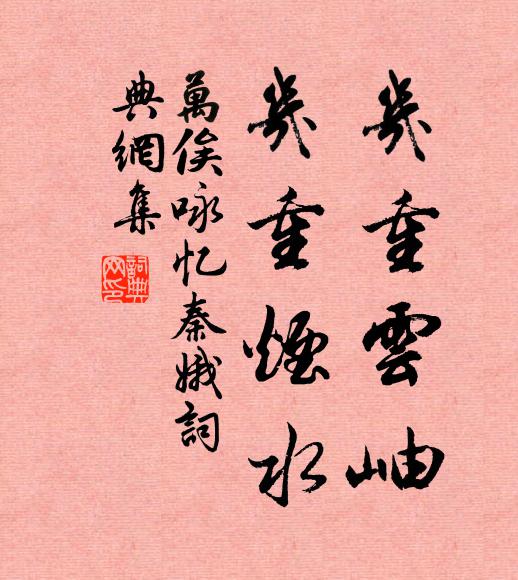 幾重雲岫
幾重煙水
萬俟咏忆秦娥詞
典網集
詞典
网印